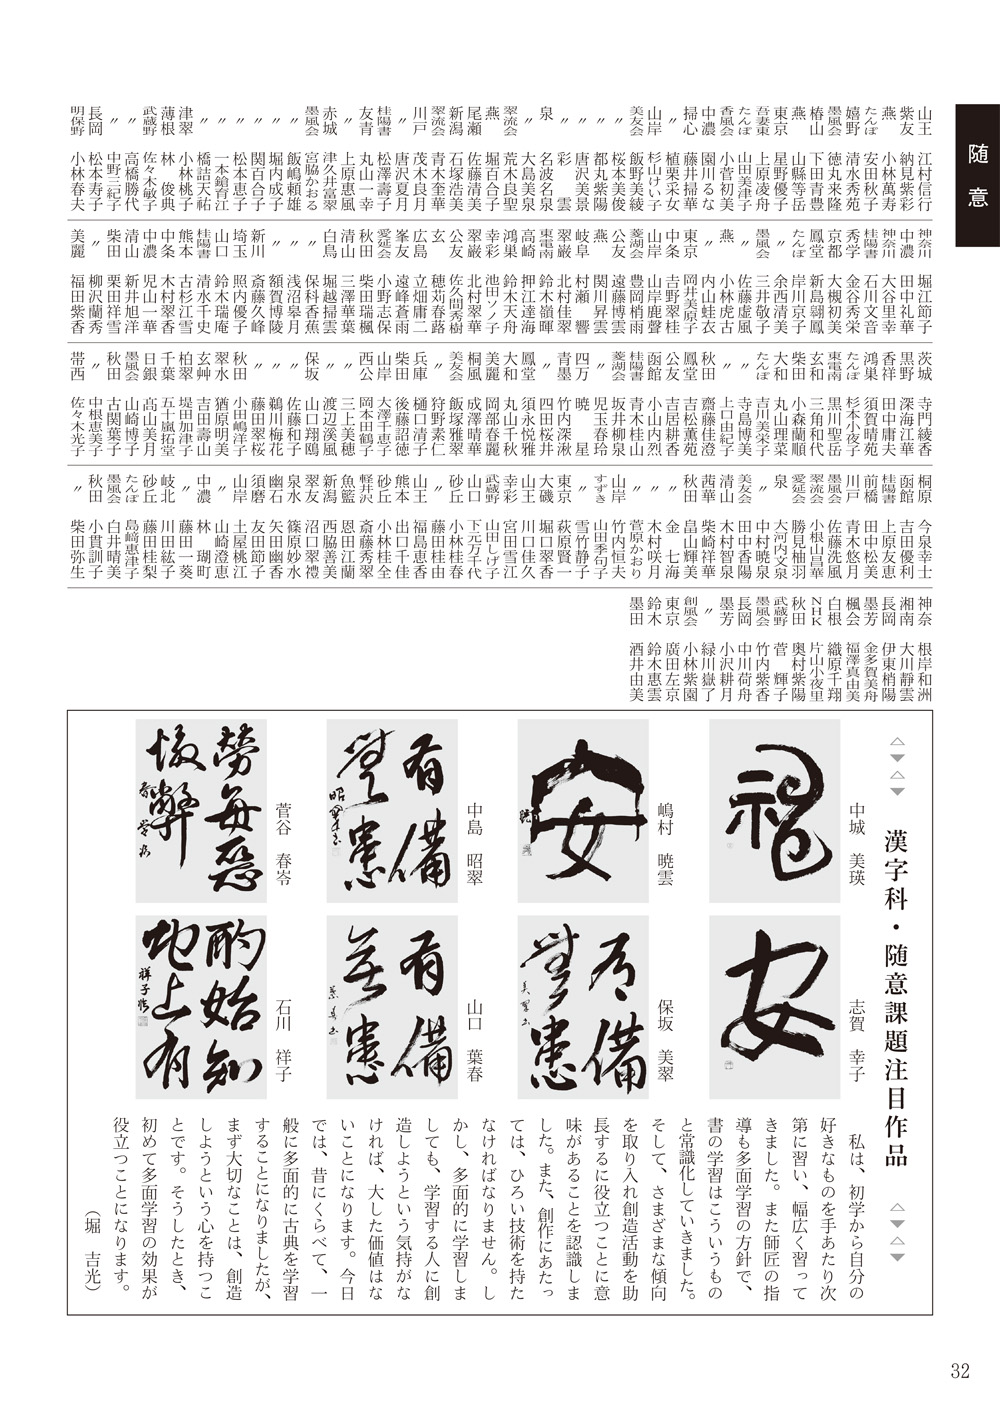 随意
山王 江村信行
紫友 納見紫彩
燕 小林萬寿
たんぽ 安田秋子
嬉野 清水秀苑
墨風会 徳丸来隆
椿山 下田青豊
燕 山縣等岳
東京 星野優子
吾妻東 上原凌舟
たんぽ 山田美津子
香風会 小菅初美
中濃 園川るな
掃心 藤井掃華
〃 植栗采女
山岸 杉山けい子
美友会 飯野美綾
〃 桜本美俊
〃 都丸紫陽
〃 唐沢美景
〃 彩雲
泉 名波名泉
〃 大島美泉
翠流会 荒木良聖
燕 堀百合子
尾瀬 佐藤清美
新潟 石塚浩美
翠流会 青木奎華
川戸 茂木良月
〃 唐沢夏月
桂陽書 松澤壽子
友青 丸山一幸
〃 上原惠風
赤城 津久井富翠
墨風会 宮脇かおる
〃 飯嶋頼雄
〃 堀内成子
〃 関百合子
〃 松本恵子
〃 一本鎗育江
〃 橋詰天祐
津翠 小林桃子
薄根 林俊典
武蔵野 佐々木敏子
〃 高橋勝代
〃 中野三紀子
長岡 松本寿子
明保野 小林春夫
神奈川 堀江節子
中濃 田中礼華
神奈川 大谷里幸
桂陽書 石川文音
秀学 金谷秀栄
京都 大槻初美
鳳堂 新島翮鳳
たんぽ 岸川京子
〃 余西清美
墨風会 三井敬子
〃 佐藤虚風
燕 小林虎古
〃 内山蛙衣
東京 岡井美原子
中条 吉野翠桂
山岸 山岸鹿聲
菱湖会 豊岡梢雨
公友 遠藤博雲
燕 関川昇雲
岐阜 村瀬響
翠巌 北村佳翠
東電南 鈴木嶺暉
高崎 押江達海
鴻巣 鈴木天舟
幸彩 池田ツノ子
翠巌 北村翠華
公友 佐久間秀樹
玄 穂苅春蕗
広島 立畑庸二
峯友 遠峰蒼雨
愛延会 小野志保
秋田 柴田瑞楓
清山 三澤華葉
白鳥 堀越掃雲
〃 保科香蕉
〃 浅沼皋月
〃 額賀博陵
新川 斎藤久峰
埼玉 照内優子
山口 鈴木瑞庵
桂陽書 清水千史
熊本 古杉江雪
中条 木村翠香
中濃 児山一華
清山 新井旭洋
柴田 栗田祥雪
〃 柳沢蘭秀
美麗 福田紫香
茨城 寺門綾香
黒野 深海江華
香祥 田中庸夫
鴻巣 須賀晴苑
たんぽ 杉本小夜子
東電南 黒川聖岳
玄和 三角和代
柴田 小森蘭順
大和 丸山理菜
たんぽ 吉川美栄子
〃 寺島博美
〃 上口由紀子
秋田 齋藤佳澄
鳳堂 吉松薫苑
公友 吉居耕香
函館 小山内烈
桂陽書 青木桂山
菱湖会 坂井柳泉
〃 児玉春玲
四万 暁星
青墨 竹内深湫
〃 四田桜井
鳳堂 須永悦雅
大和 丸山千秋
美麗 岡部春麗
桐風 成澤晴華
美友会 飯塚雅翠
〃 狩野素仁
兵庫 樋口清子
柴田 後藤詔徳
山岸 大澤千恵子
西公 岡本田鶴子
〃 三上美穂
保坂 山口翔鴎
〃 佐藤和子
〃 鵜川梅花
〃 藤田翠桜
秋田 小田嶋洋子
翠水 猶原明美
玄艸 吉田壽山
柏原 堤田加津子
千葉 五十嵐拓堂
日銀 髙山美月
墨風会 山崎博子
秋田 古関葉子
〃 中根恵美子
帯西 佐々木光子
桐原 今泉幸士
函館 吉田優利
桂陽書 上原友恵
前橋 田中松美
川戸 青木悠月
墨風会 佐藤洗風
翠流会 小根山昌華
愛延会 勝見柚羽
泉 大河内文泉
〃 中村暁泉
美友会 田中香陽
〃 木村智泉
清山 柴崎祥華
茜華 畠山輝美
秋田 金七海
〃 木村咲月
〃 菅原かおり
山岸 竹内恒夫
すずき 山田季句子
〃 雪竹静子
東京 萩原賢一
大磯 堀口翠香
山王 山川佳久
幸彩 宮田雪江
武蔵野 山田しげ子
山口 下元万千代
砂丘 小林桂春
〃 藤田桂由
山王 福島恵香
熊本 出口千佳
砂丘 小林桂全
軽井沢 斎藤秀翠
魚籃 恩田江蘭
新潟 西脇善美
翠友 沼口翠禮
泉水 篠原妙水
幽石 矢田幽香
須磨 友田節子
山岸 土屋桃江
〃 山崎澄恵
中濃 林瑚町
〃 藤田一葵
岐北 川田紘子
砂丘 藤田桂梨
たんぽ 島崎惠津子
墨風会 白井晴美
秋田 小貫訓子
〃 柴田弥生
神奈 根岸和洲
湘南 大川靜雲
長岡 伊東梢陽
墨芳 金多賀美舟
楓会 福澤真由美
白根 織原千翔
NHK 片山小夜里
秋田 奥村紫陽
武蔵野 菅輝子
墨風会 竹内紫香
長岡 中川荷舟
墨芳 小沢耕月
〃 緑川嶽了
創風会 小林紫園
東京 廣田左京
鈴木 鈴木惠雲
墨田 酒井由美
△▼△▼ 漢字科・随意課題注目作品 △▼△▼
中城 美瑛
志賀 幸子
安
嶋村 暁雲
安
保坂 美翠
有備
無患
中島 昭翠
有備
無患
山口 葉春
有備
無患
菅谷 春岺
石川 祥子
酌始知
地上有
私は、初学から自分の
好きなものを手あたり次
第に習い、幅広く習って
きました。また師匠の指
導も多面学習の方針で、
書の学習はこういうもの
と常識化していきました。
そして、さまざまな傾向
を取り入れ創造活動を助
長するに役立つことに意
味があることを認識しま
した。また、創作にあたっ
ては、ひろい技術を持た
なければなりません。し
かし、多面的に学習しま
しても、学習する人に創
造しようという気持がな
ければ、大した価値はな
いことになります。今日
では、昔にくらべて、一
般に多面的に古典を学習
することになりましたが、
まず大切なことは、創造
しようという心を持つこ
とです。そうしたとき、
初めて多面学習の効果が
役立つことになります。
（堀 吉光）
32